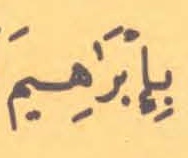 بِإِبْرَاهِيمَ